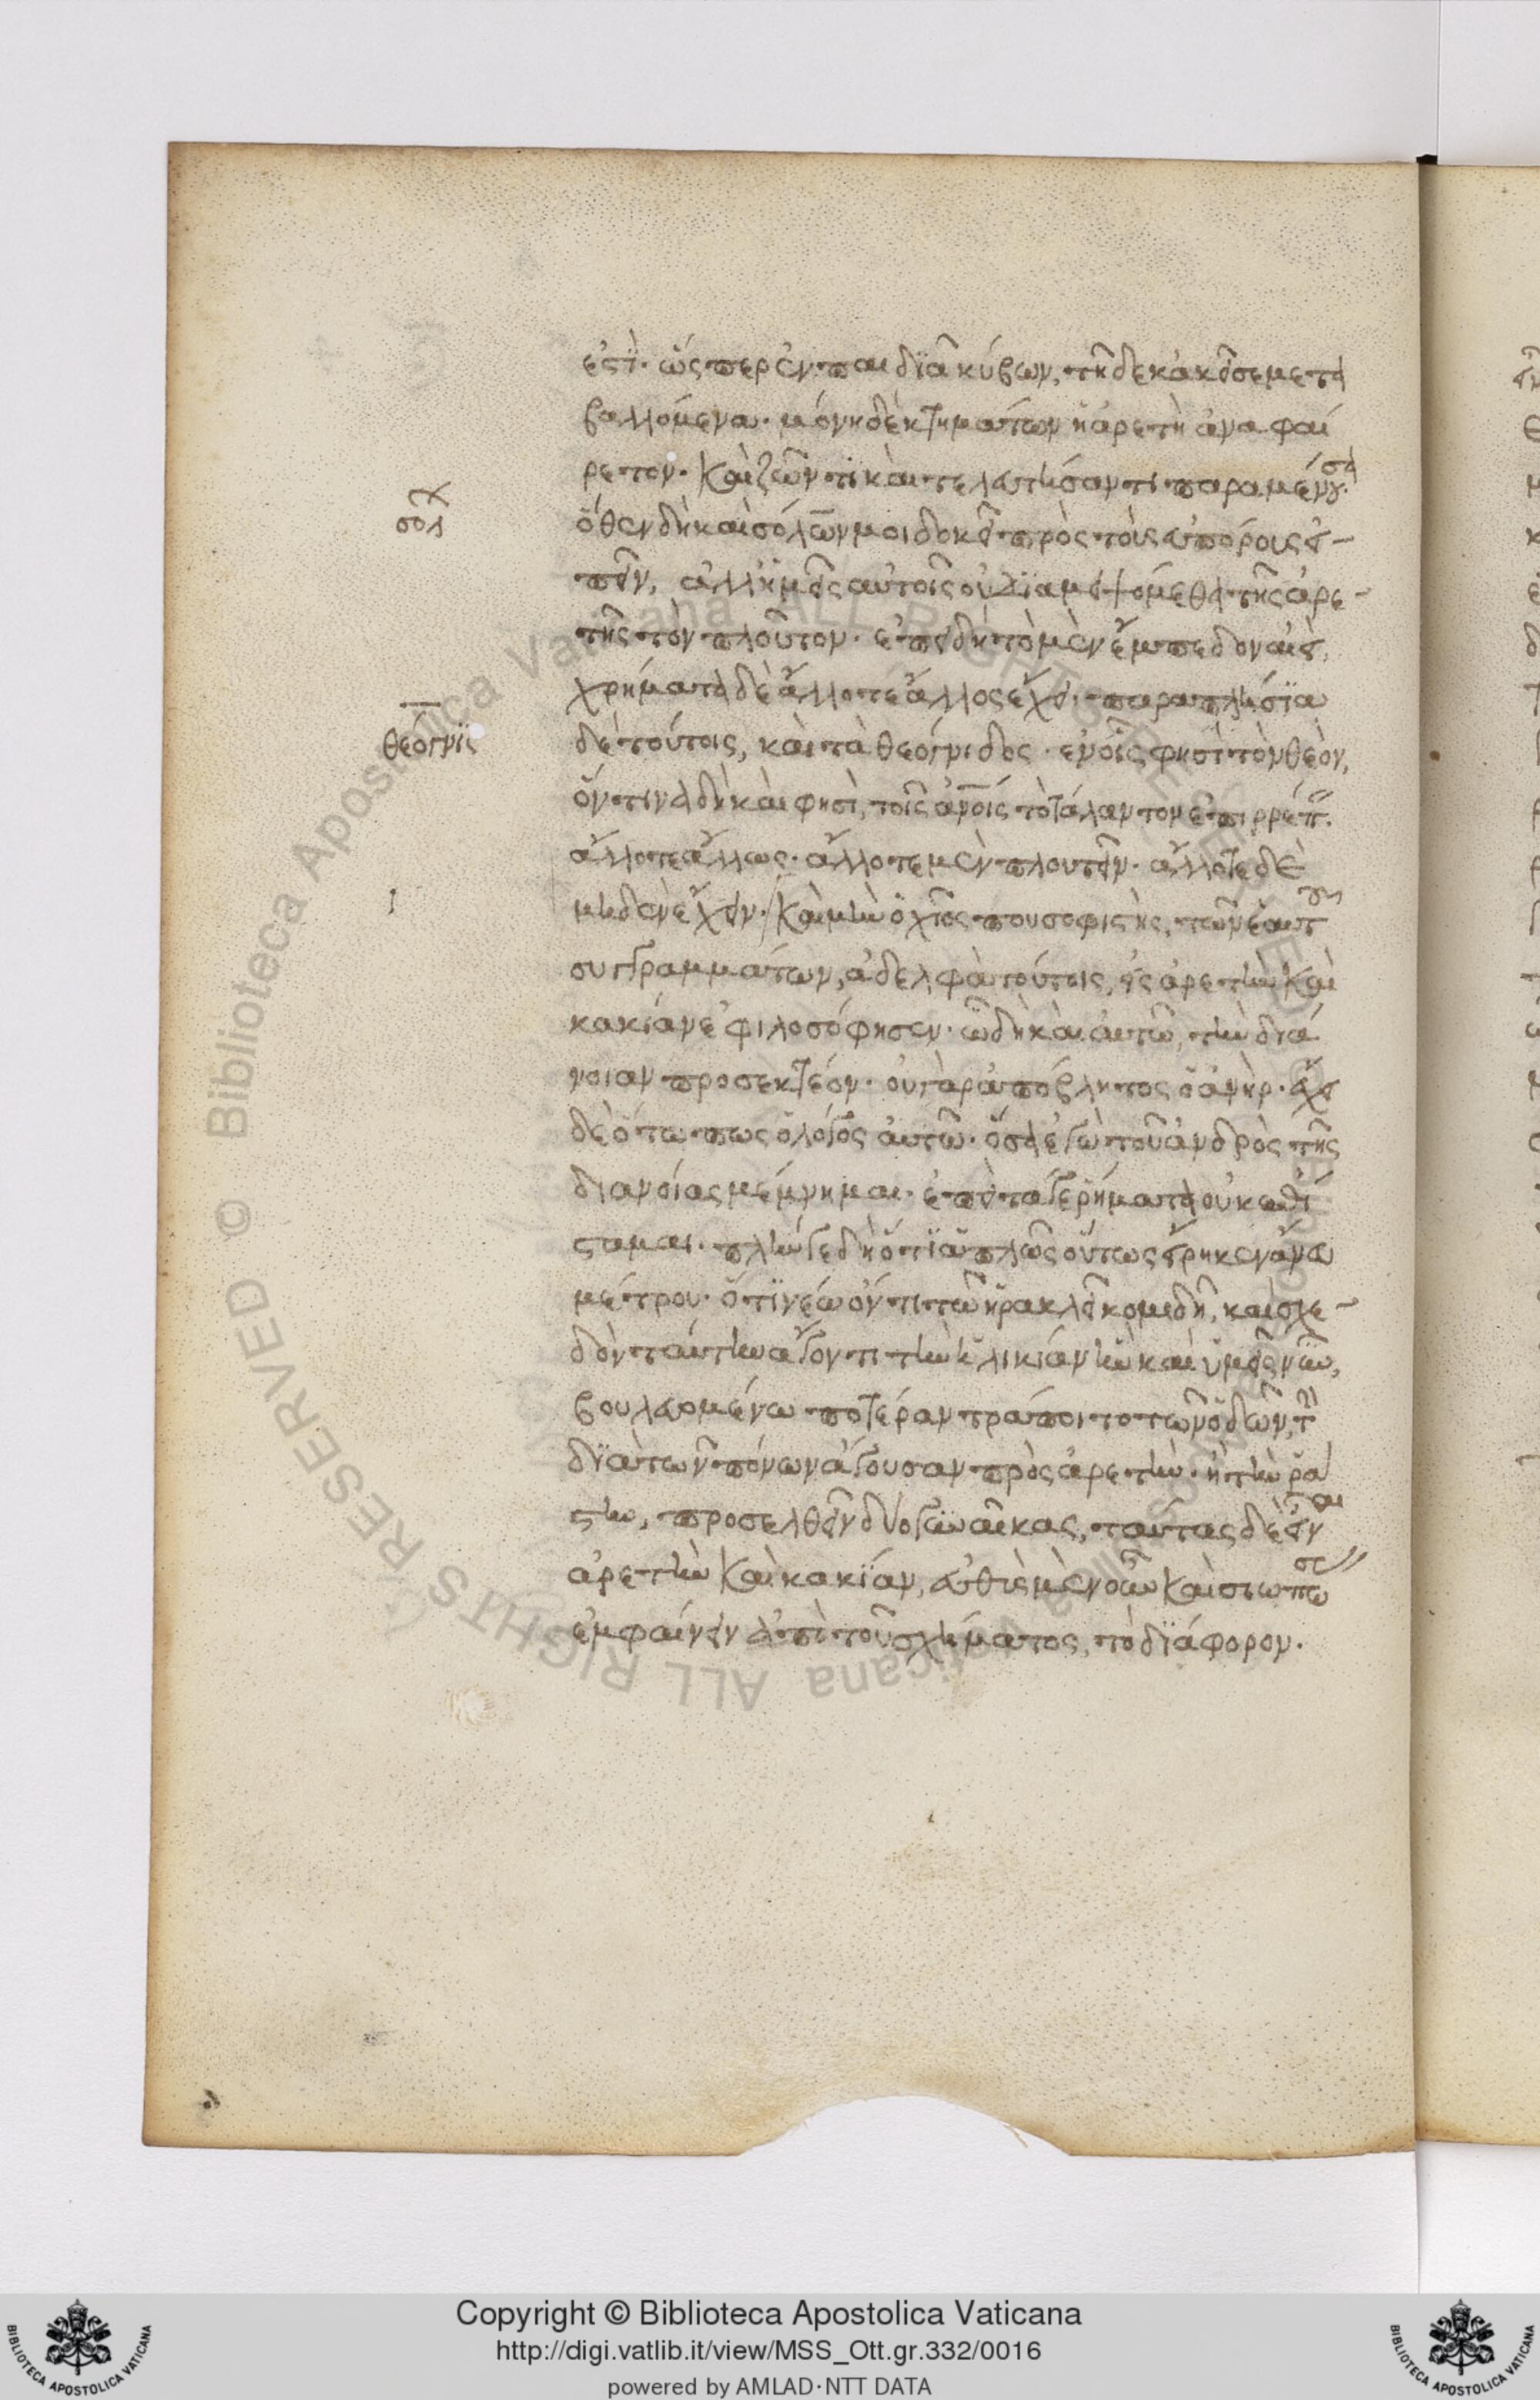 ἐστὶ· ὥσπερ ἐν παιδιᾷ κύβων, τῇδε κἀκεῖσε μετα
βαλλόμενα· μόνη δὲ κτημάτων ἡ ἀρετὴ ἀναφαί
ρετον· καὶ ζῶντι καὶ τελευτήσαντι παραμένουσα·
σόλ
ὅθεν δὴ καὶ σόλων μοι δοκεῖ πρὸς τοὺς εὐπόρους εἰ-
πεῖν, ἀλλ' ἡμεῖς αὐτοῖς οὐ διαμειψόμεθα τῆς ἀρε-
τῆς τὸν πλοῦτον· ἐπειδὴ τὸ μὲν ἔμπεδον αἰεὶ,
χρήματα δὲ ἄλλοτε ἄλλος ἔχει· παραπλήσια
θέογνις
δὲ τούτοις, καὶ τὰ θεόγνιδος· ἐν οἷς φησὶ τὸν θεὸν,
ὅντινα δὴ καὶ φησὶ, τοῖς ἀνοις τὸ τάλαντον ἐπιρρέπειν
ἄλλοτε ἄλλως· ἄλλοτε μὲν πλουτεῖν· ἄλλοτε δὲ
μηδὲν ἔχειν· καὶ μὴν ὁ χῖός που σοφιστὴς, τῶν ἑαυτοῦ
συγγραμμάτων, ἀδελφὰ τούτοις, εἰς ἀρετὴν καὶ
κακίαν ἐφιλοσόφησεν· ᾧ δὴ καὶ αὐτῷ, τὴν διά
νοιαν προσεκτέον· οὐ γὰρ ἀπόβλητος ὁ ἀνήρ· ἔχει
δὲ οὕτω πως ὁ λόγος αὐτῷ· ὅσα ἐγὼ τοῦ ἀνδρὸς τῆς
διανοίας μέμνημαι· ἐπεὶ τά γε ῥήματα οὐκ ἐπί
σταμαι· πλήν γε δὴ ὅτι ἁπλῶς οὕτως εἴρηκεν ἄνευ
μέτρου· ὅτι νέῳ ὄντι τῷ ἡρακλεῖ κομιδῇ, καὶ σχε-
δὸν ταύτην ἄγοντι τὴν ἡλικίαν ἣν καὶ ὑμεῖς νῦν,
βουλευομένῳ ποτέραν τράποιτο τῶν ὁδῶν, τὴν
διὰ τῶν πόνων ἄγουσαν πρὸς ἀρετὴν· ἢ τὴν ῥᾴ
στην, προσελθεῖν δύο γυναῖκας, ταύτας δὲ εἶναι
ἀρετὴν καὶ κακίαν, εὐθὺς μὲν οὖν καὶ σιωπώσας
ἐμφαίνειν ἀπὸ τοῦ σχήματος, τὸ διάφορον.
Copyright © Biblioteca Apostolica Vaticana
http://digi.vatlib.it/view/MSS_Ott.gr.332/0016
powered by AMLAD·NTT DATA